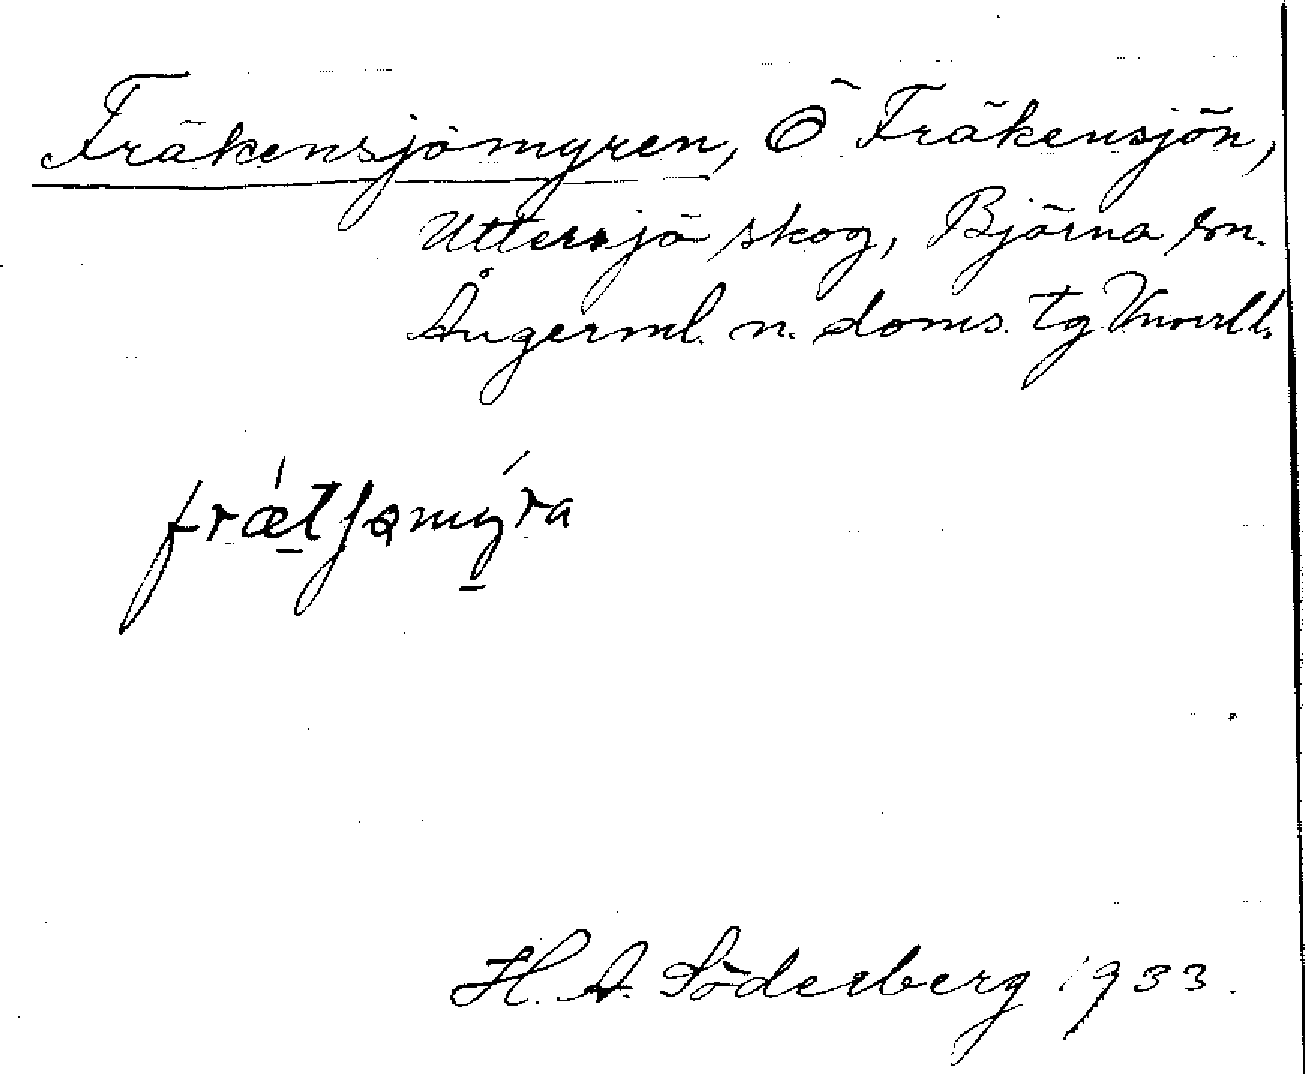 Fräkensjömyren, Ö Fräkensjön,
Uttersjö skog, Björna sn.
Ångerml. n. doms. tg Vnorrl l.
frǽtʃømýra
H. A. Söderberg 1933.